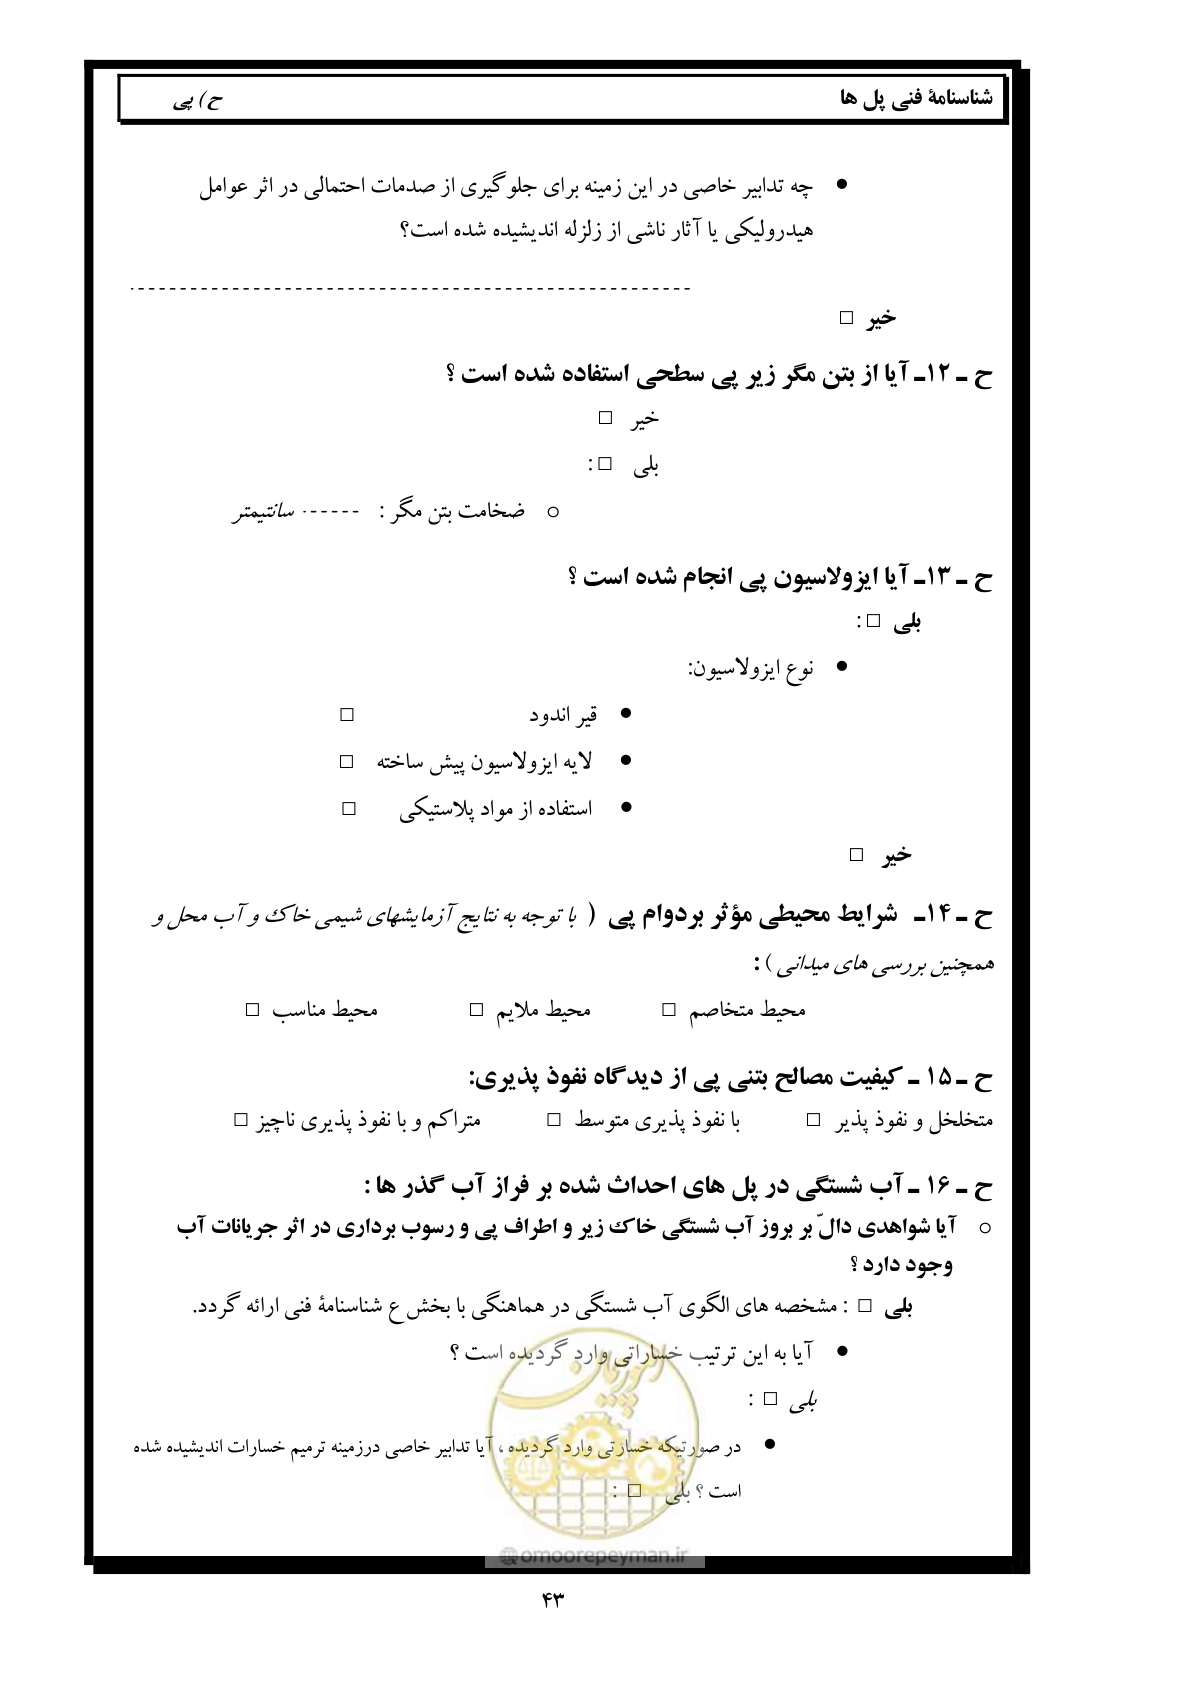 شناسنامهٔ فنی پل ها
ح) پی
● چه تدابیر خاصی در این زمینه برای جلوگیری از صدمات احتمالی در اثر عوامل
هیدرولیکی یا آثار ناشی از زلزله اندیشیده شده است؟
-----------------------------------------------------
خیر □
ح ـ ۱۲ـ آیا از بتن مگر زیر پی سطحی استفاده شده است ؟
خیر □
بلی □ :
○ ضخامت بتن مگر : ------ سانتیمتر
ح ـ ۱۳ـ آیا ایزولاسیون پی انجام شده است ؟
بلی □ :
● نوع ایزولاسیون:
● قیر اندود □
● لایه ایزولاسیون پیش ساخته □
● استفاده از مواد پلاستیکی □
خیر □
ح ـ ۱۴ـ شرایط محیطی مؤثر بردوام پی ( با توجه به نتایج آزمایشهای شیمی خاک و آب محل و
همچنین بررسی های میدانی ) :
محیط متخاصم □ محیط ملایم □ محیط مناسب □
ح ـ ۱۵ ـ کیفیت مصالح بتنی پی از دیدگاه نفوذ پذیری:
متخلخل و نفوذ پذیر □ با نفوذ پذیری متوسط □ متراکم و با نفوذ پذیری ناچیز □
ح ـ ۱۶ ـ آب شستگی در پل های احداث شده بر فراز آب گذر ها :
○ آیا شواهدی دالّ بر بروز آب شستگی خاک زیر و اطراف پی و رسوب برداری در اثر جریانات آب
وجود دارد ؟
بلی □ : مشخصه های الگوی آب شستگی در هماهنگی با بخش ع شناسنامهٔ فنی ارائه گردد.
● آیا به این ترتیب خساراتی وارد گردیده است ؟
بلی □ :
● در صورتیکه خسارتی وارد گردیده ، آیا تدابیر خاصی درزمینه ترمیم خسارات اندیشیده شده
است ؟ بلی □ :
امور پیمان
@omoorepeyman.ir
۴۳